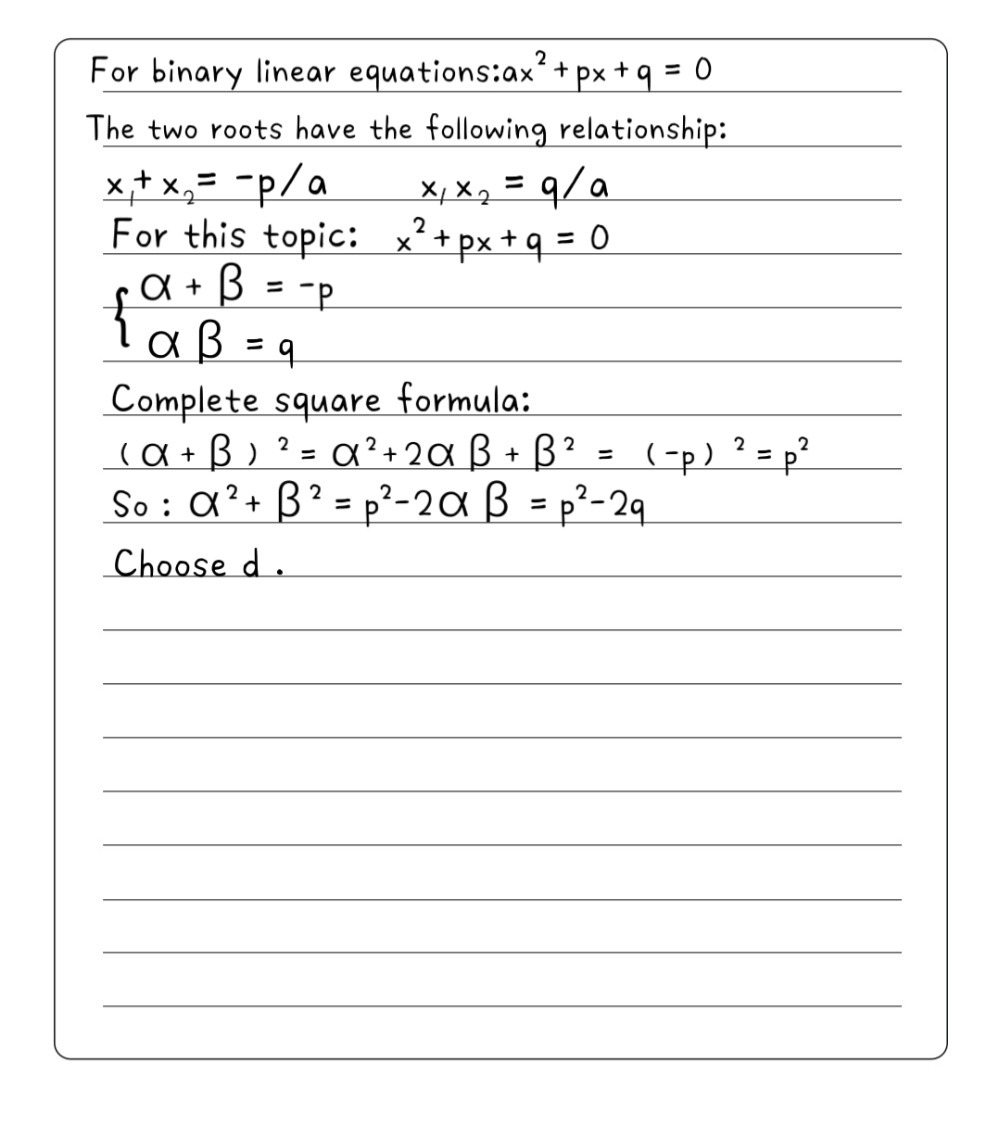 For binary linear equations:ax²+px+q = 0
The two roots have the following relationship:
x₁+x₂= -p/a x₁x₂ = q/a
For this topic: x²+px+q = 0
{ α + β = -p
α β = q
Complete square formula:
(α + β) ² = α²+2α β + β² = (-p) ² = p²
So : α²+ β² = p²-2α β = p²-2q
Choose d .